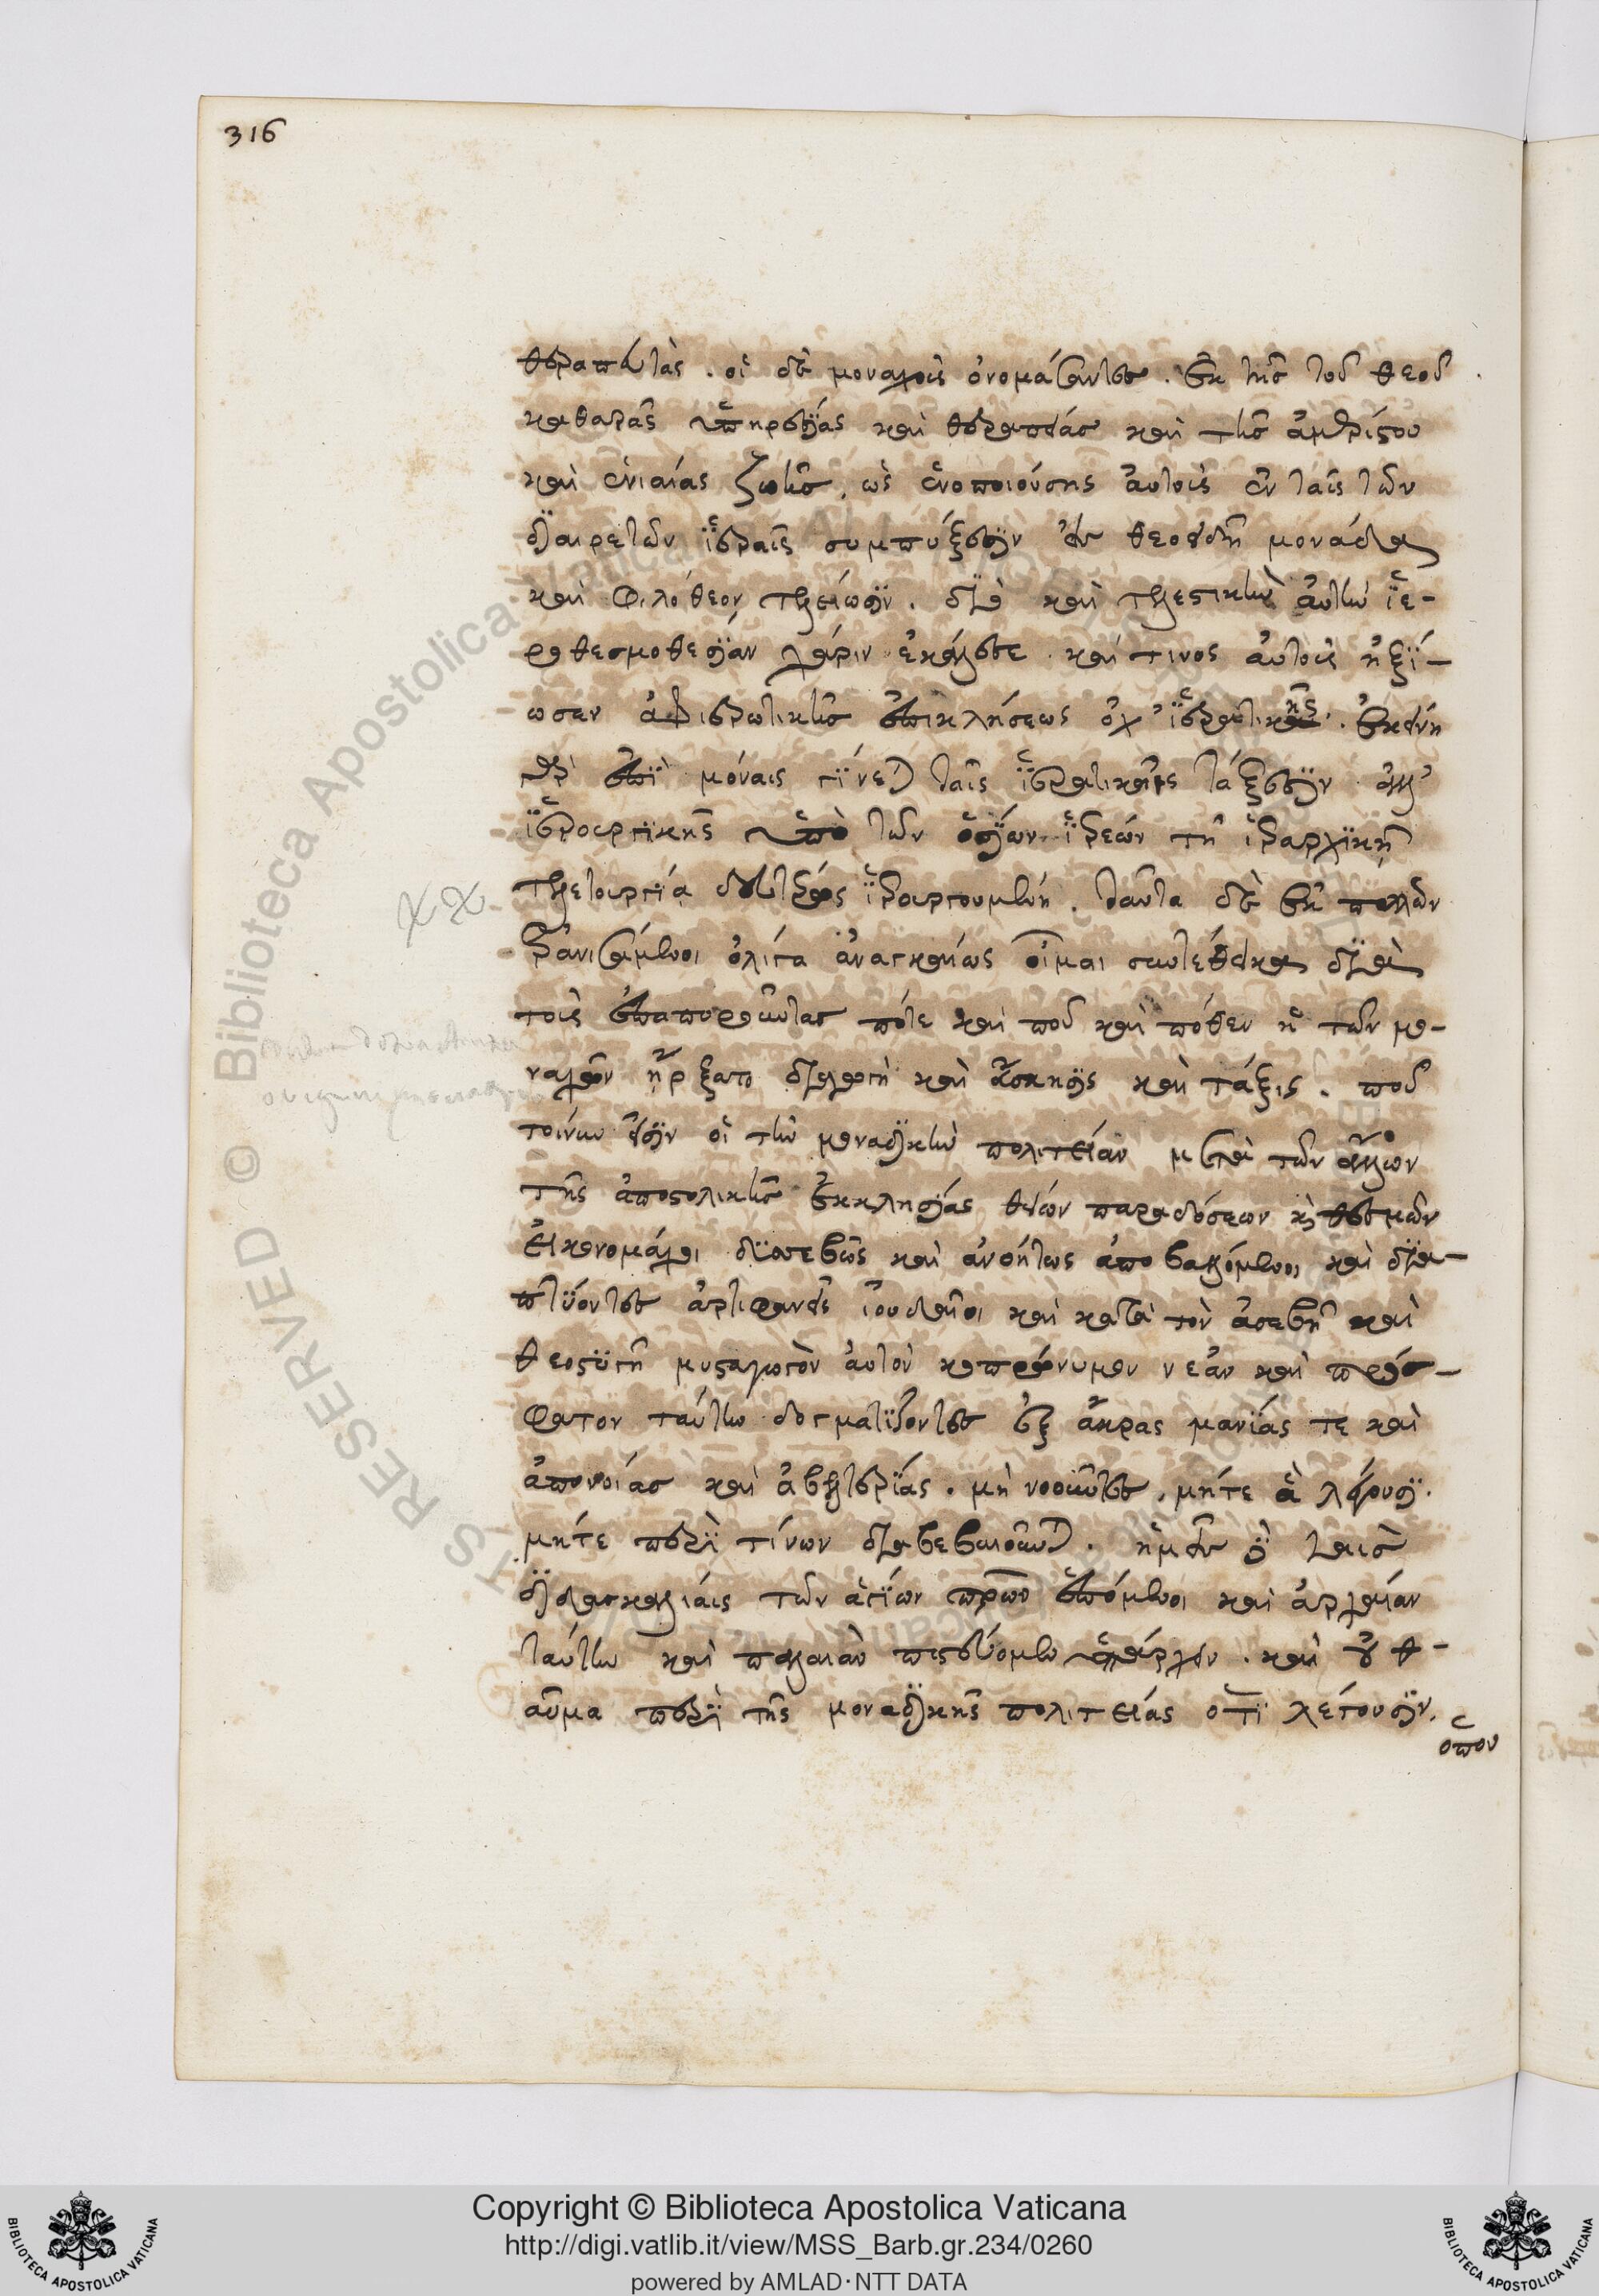 316
θεραπευτὰς. οἱ δὲ μοναχοὺς ὀνομάζοντες. ἐκ τῆς τοῦ θεοῦ
καθαρᾶς ὑπηρεσίας καὶ θεραπείας καὶ τῆς ἀμερίστου
καὶ ἑνιαίας ζωῆς, ὡς ἑνοποιούσης αὐτοὺς ἐν ταῖς τῶν
διαιρετῶν ἱεραῖς συμπτύξεσιν εἰς θεοειδῆ μονάδα
καὶ φιλόθεον τελείωσιν. διὸ καὶ τελεστικὴν αὐτὴν ἱε-
ρὰ θεσμοθεσίαν χάριν ἐκάλεσε καί τινος αὐτοὺς ἠξί-
ωσαν ἀφιερωτικῆς ἐπικλήσεως οὐχ' ἱερατικῆς. ἐκείνη
γὰρ ἐπὶ μόναις γίνεται ταῖς ἱερατικαῖς τάξεσιν ἀλλ'
ἱερουργικῆς ὑπὸ τῶν ὁσίων ἱερέων τῇ ἱεραρχικῇ
τελετουργίᾳ δευτέρως ἱερουργουμένη. ταῦτα δὲ ἐκ πολλῶν
ἐρανισάμενοι ὀλίγα ἀναγκαίως οἶμαι συντέθεικα διὰ
τοὺς ἐπαποροῦντας πότε καὶ ποῦ καὶ πόθεν ἡ τῶν μο-
ναχῶν ἤρξατο διαγωγὴ καὶ ἄσκησις καὶ τάξις. ποῦ
τοίνυν εἰσὶν οἱ τὴν μοναδικὴν πολιτείαν μετὰ τῶν ἄλλων
τῆς ἀποστολικῆς ἐκκλησίας θείων παραδόσεων καὶ θεσμῶν
εἰκονομάχοι δυσσεβῶς καὶ ἀνοήτως ἀποβαλλόμενοι καὶ δια-
πτύοντες ἀρτιφανεῖς ἰουδαῖοι καὶ κατὰ τὸν ἀσεβῆ καὶ
θεοστυγῆ μυσταγωγὸν αὐτῶν κοπρώνυμον νέαν καὶ πρόσ-
φατον ταύτην δογματίζοντες ἐξ ἄκρας μανίας τε καὶ
ἀπονοίας καὶ ἀβελτερίας. μὴ νοοῦντες, μήτε ἃ λέγουσι
μήτε περὶ τίνων διαβεβαιοῦνται. ἡμεῖς δὲ ταῖς
διδασκαλίαις τῶν ἁγίων πατέρων ἑπόμενοι καὶ ἀρχαίαν
ταύτην καὶ παλαιὰν πιστεύομεν ὑπάρχειν. καὶ οὐ θ-
αῦμα περὶ τῆς μοναδικῆς πολιτείας ὅτι λέγουσιν.
ὅπου
Copyright © Biblioteca Apostolica Vaticana
http://digi.vatlib.it/view/MSS_Barb.gr.234/0260
powered by AMLAD·NTT DATA
BIBLIOTECA APOSTOLICA VATICANA
BIBLIOTECA APOSTOLICA VATICANA